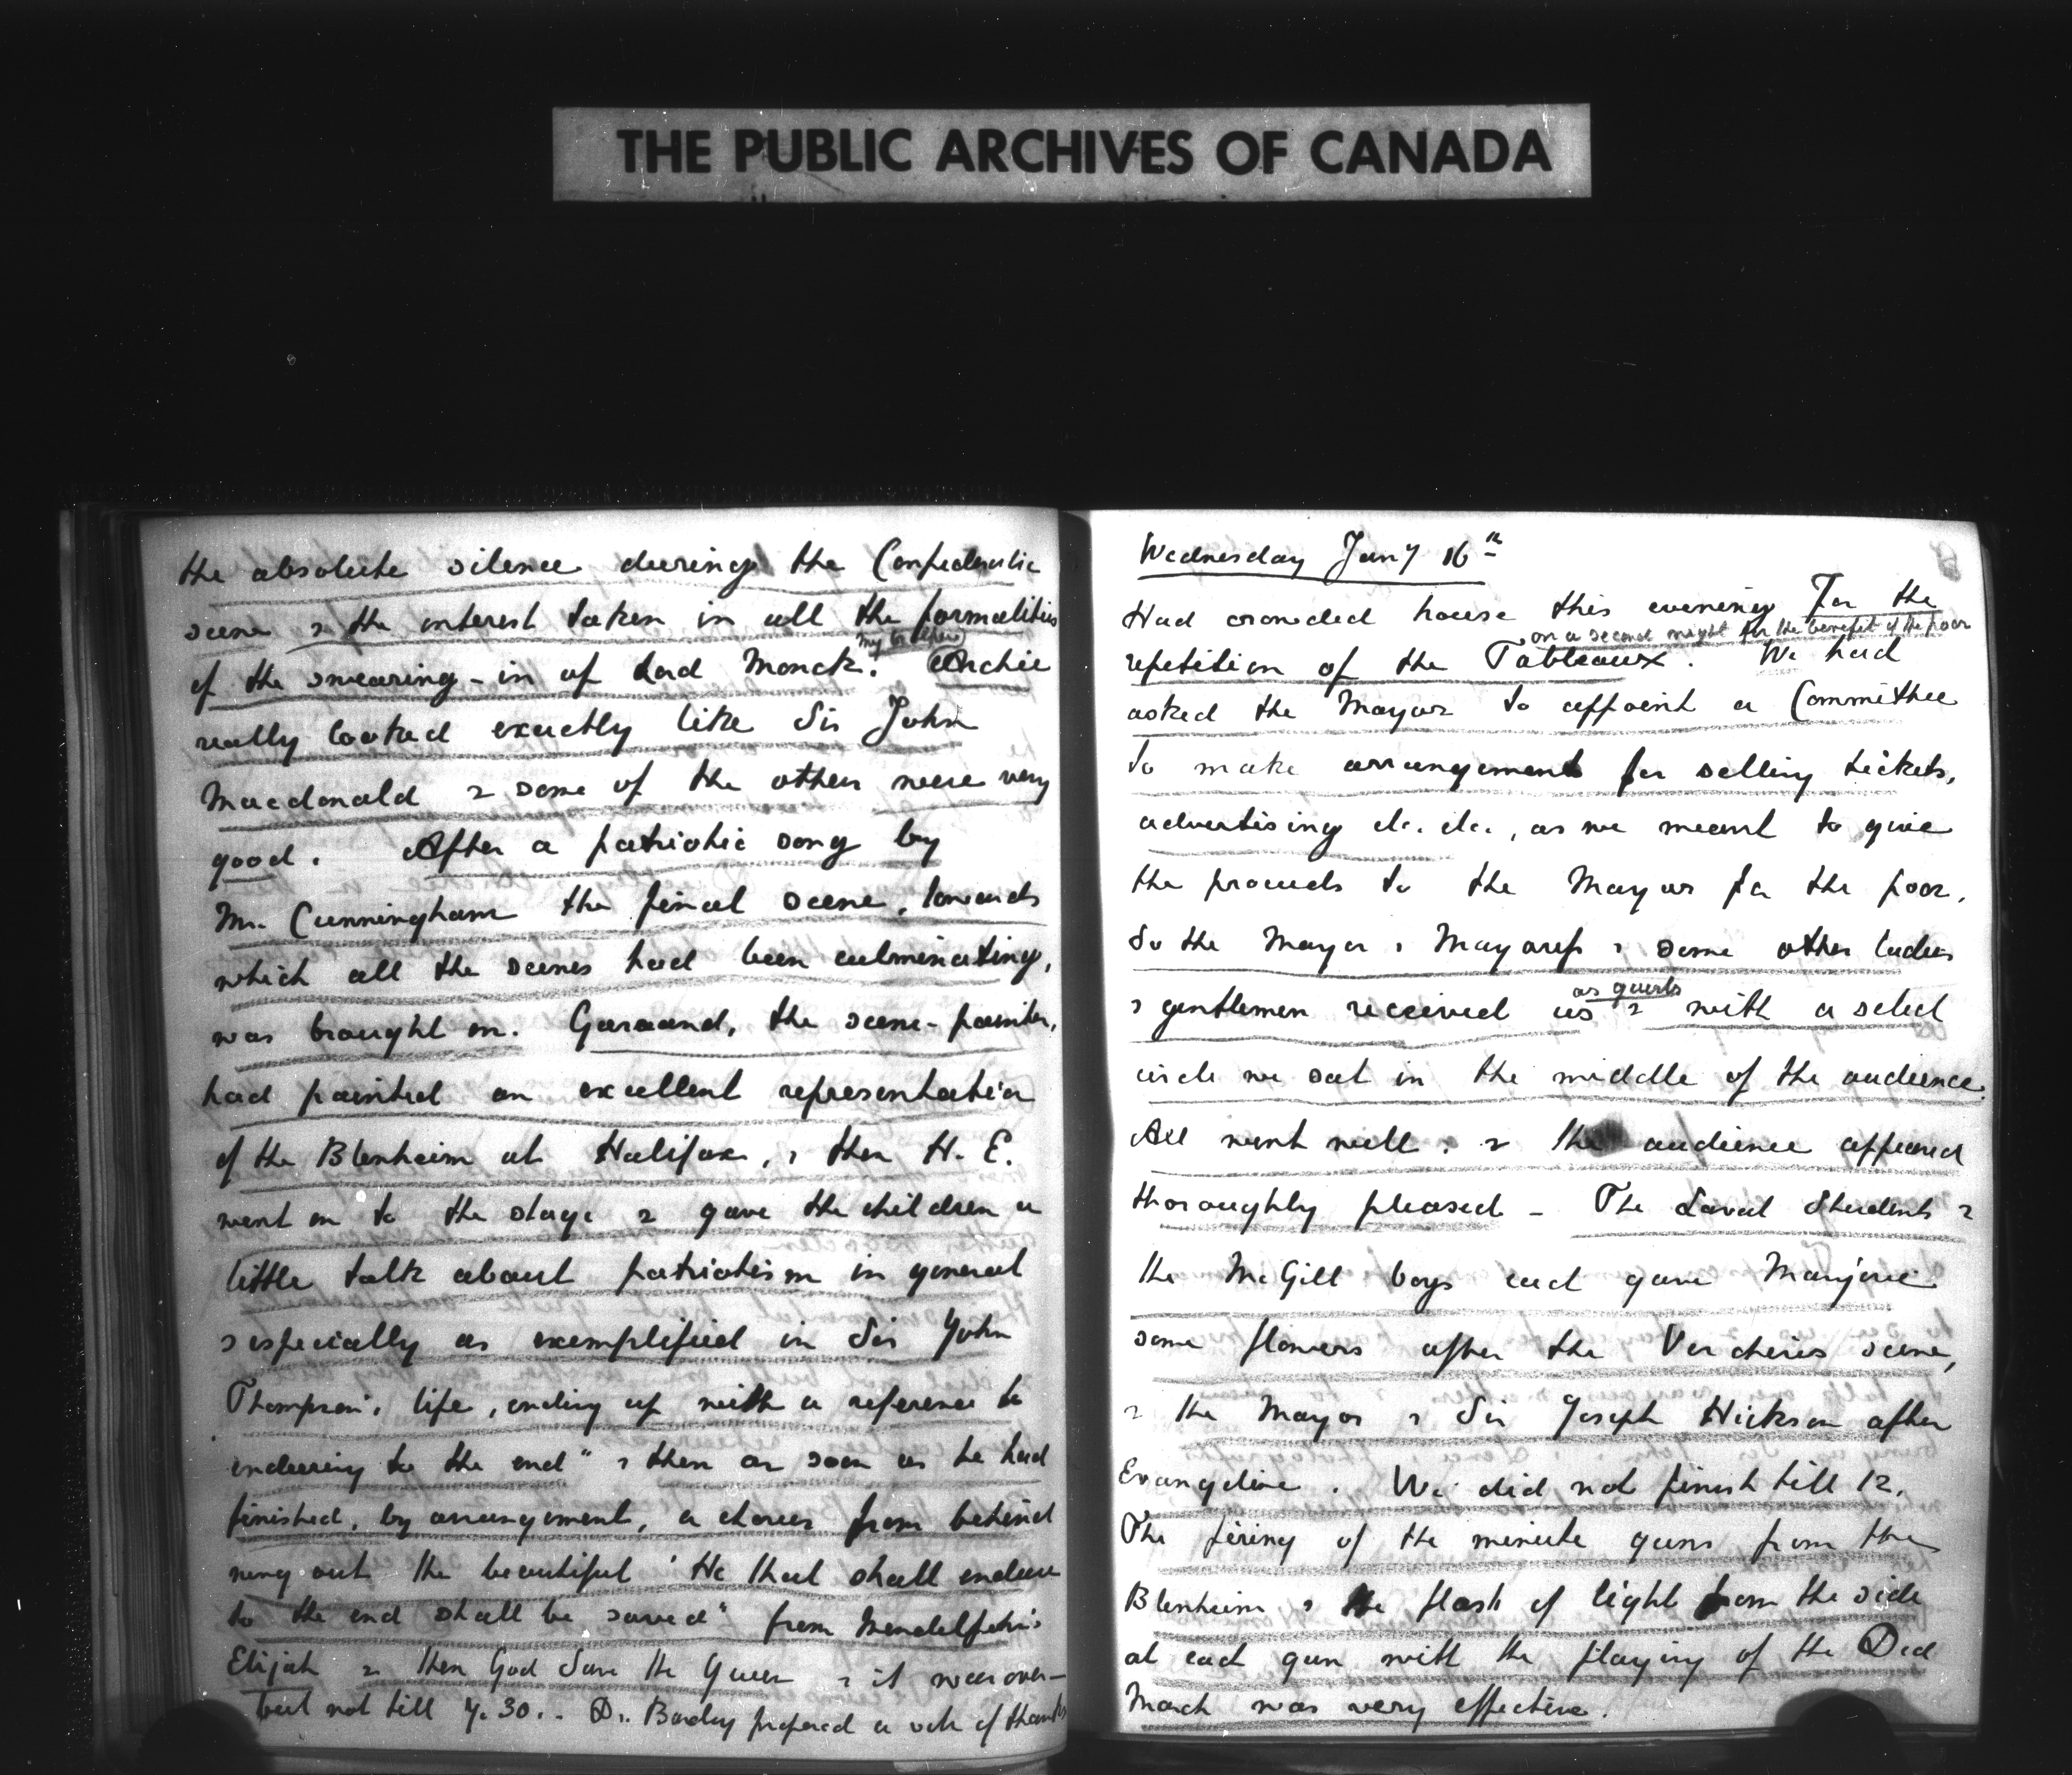 THE PUBLIC ARCHIVES OF CANADA
the absolute silence during the Confederation
scene & the interest taken in all the formalities
my brother
of the swearing-in of Lord Monck. Archie
really looked exactly like Sir John
Macdonald & some of the others were very
good. After a patriotic song by
Mr. Cunningham the final scene, towards
which all the scenes had been culminating,
was brought on. Garaand, the scene-painter,
had painted an excellent representation
of the Blenheim at Halifax, & then H.E.
went on to the stage & gave the children a
little talk about patriotism in general
& especially as exemplified in Sir John
Thompson's life, ending up with a reference to
enduring to the end" & then as soon as he had
finished, by arrangement, a chorus from behind
rung out the beautiful "He that shall endure
to the end shall be saved" from Mendelssohn's
Elijah & then God Save the Queen & it was over—
but not till 4.30. - Dr. Barclay proposed a vote of thanks
Wednesday Jany 16th
Had crowded house this evening for the
on a second night for the benefit of the poor
repetition of the Tableaux. We had
asked the Mayor to appoint a Committee
to make arrangements for selling tickets,
advertising etc. etc., as we meant to give
the proceeds to the Mayor for the poor.
So the Mayor & Mayoress & some other ladies
as guests
& gentlemen received us & with a select
circle we sat in the middle of the audience.
All went well: & the audience appeared
thoroughly pleased - The Laval Students &
the McGill boys each gave Marjorie
some flowers after the Vercheres scene,
& the Mayor & Sir Joseph Hickson after
Evangeline. We did not finish till 12.
The firing of the minute guns from the
Blenheim & the flash of light from the side
at each gun with the playing of the Dead
March was very effective.